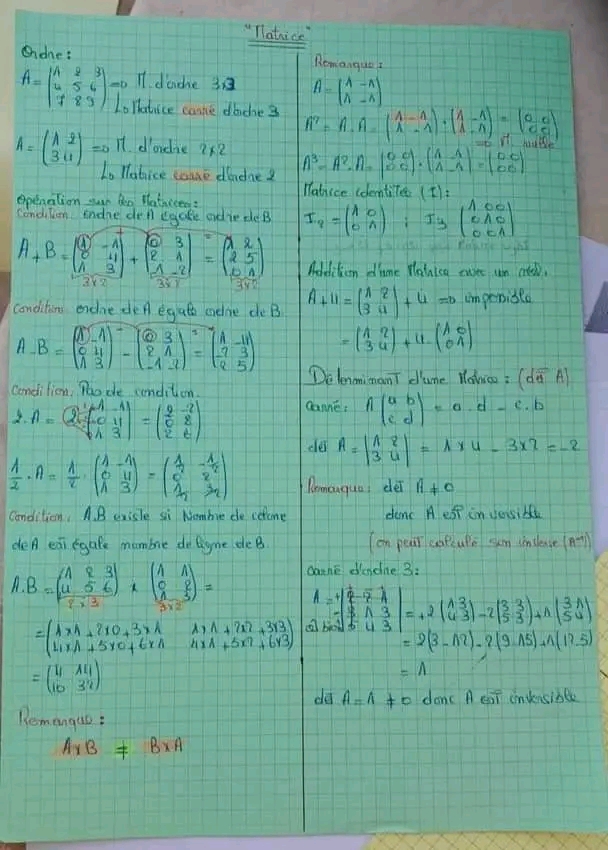 "Matrice"
Ordre :
A = (1 2 3 / 4 5 6 / 7 8 9) => M. d'ordre 3x3
↳ Matrice carré d'ordre 3
A = (1 2 / 3 4) => M. d'ordre 2x2
↳ Matrice carré d'ordre 2
Opération sur les Matrices :
Condition. ordre de A égale ordre de B
A + B = (1 -1 / 0 4 / 1 3) + (0 3 / 2 1 / -1 -2) = (1 2 / 2 5 / 0 1)
3x2 3x2 3x2
Condition ordre de A égale ordre de B
A - B = (1 -1 / 0 4 / 1 3) - (0 3 / 2 1 / -1 -2) = (1 -4 / -2 3 / 2 5)
Condition. Pas de condition.
2. A = 2 (1 -1 / 0 4 / 1 3) = (2 -2 / 0 8 / 2 6)
1/2 . A = 1/2 . (1 -1 / 0 4 / 1 3) = (1/2 -1/2 / 0 2 / 1/2 3/2)
Condition. A.B existe si Nombre de colone
de A est égale nombre de ligne de B.
A.B = (1 2 3 / 4 5 6) x (1 1 / 0 2 / 1 3) =
2x3 3x2
= (1x1 + 2x0 + 3x1 1x1 + 2x2 + 3x3 / 4x1 + 5x0 + 6x1 4x1 + 5x2 + 6x3)
= (4 14 / 10 32)
Remarque :
AxB ≠ BxA
Remarque :
A = (1 -1 / 1 -1)
A² = A. A = (1 -1 / 1 -1) . (1 -1 / 1 -1) = (0 0 / 0 0)
=> M. nulle
A³ = A². A = (0 0 / 0 0) . (1 -1 / 1 -1) = (0 0 / 0 0)
Matrice identités (I) :
I₂ = (1 0 / 0 1) ; I₃ (1 0 0 / 0 1 0 / 0 0 1)
Addition d'une Matrice avec un
A + 4 = (1 2 / 3 4) + 4 => imposible
= (1 2 / 3 4) + 4 . (1 0 / 0 1)
Déterminant d'une Matrice : (dét A)
carré : A (a b / c d) = a . d - c . b
dét A = |1 2 / 3 4| = 1 x 4 - 3 x 2 = -2
Remarque : dét A ≠ 0
donc A est inversible
(on peut calculé son inverse (A⁻¹)
carré d'ordre 3 :
A = |2 2 1 / 3 1 3 / 5 4 3| = +2 (1 3 / 4 3) - 2 (3 3 / 5 3) + 1 (3 1 / 5 4)
= 2(3 - 12) - 2(9 - 15) + 1(12 - 5)
= 1
dét A = 1 ≠ 0 donc A est inversible